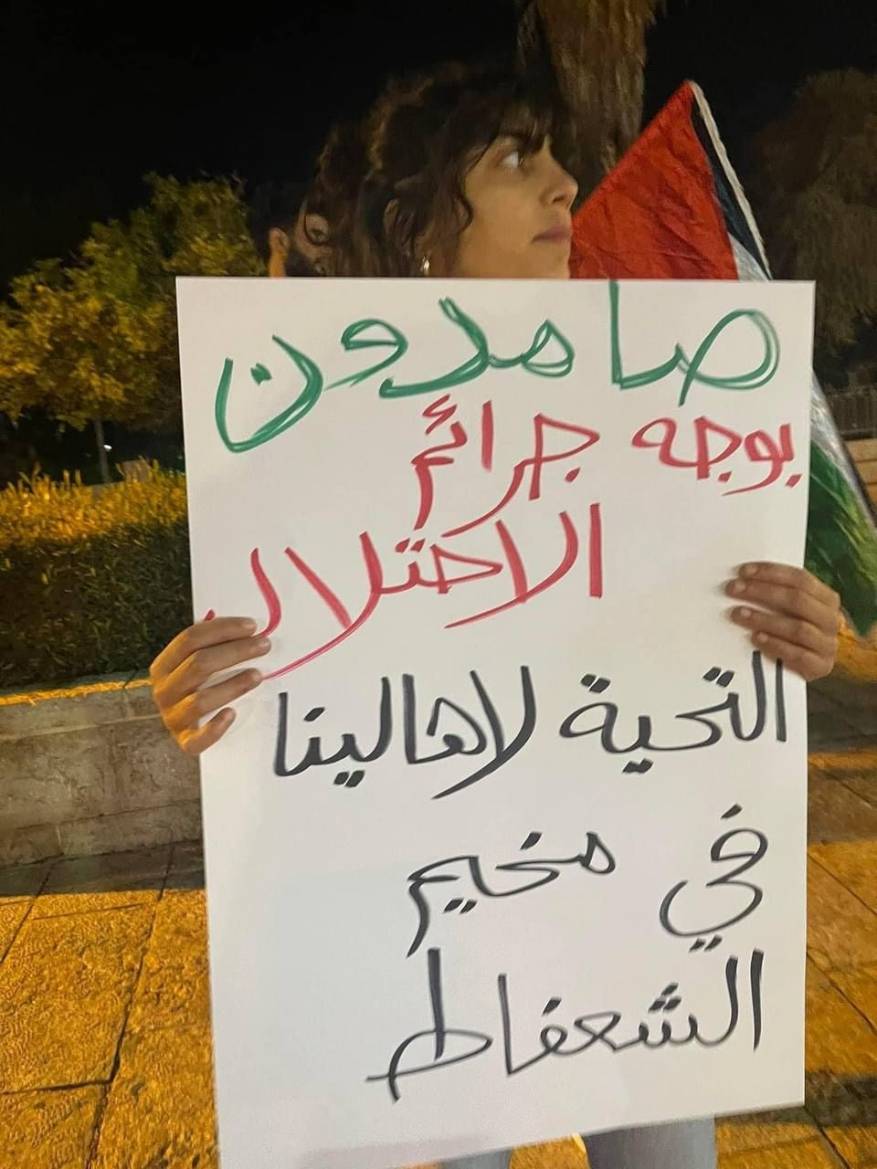 صامدون
بوجه جرائم
الاحتلال
التحية لاهالينا
في مخيم
الشعفاط